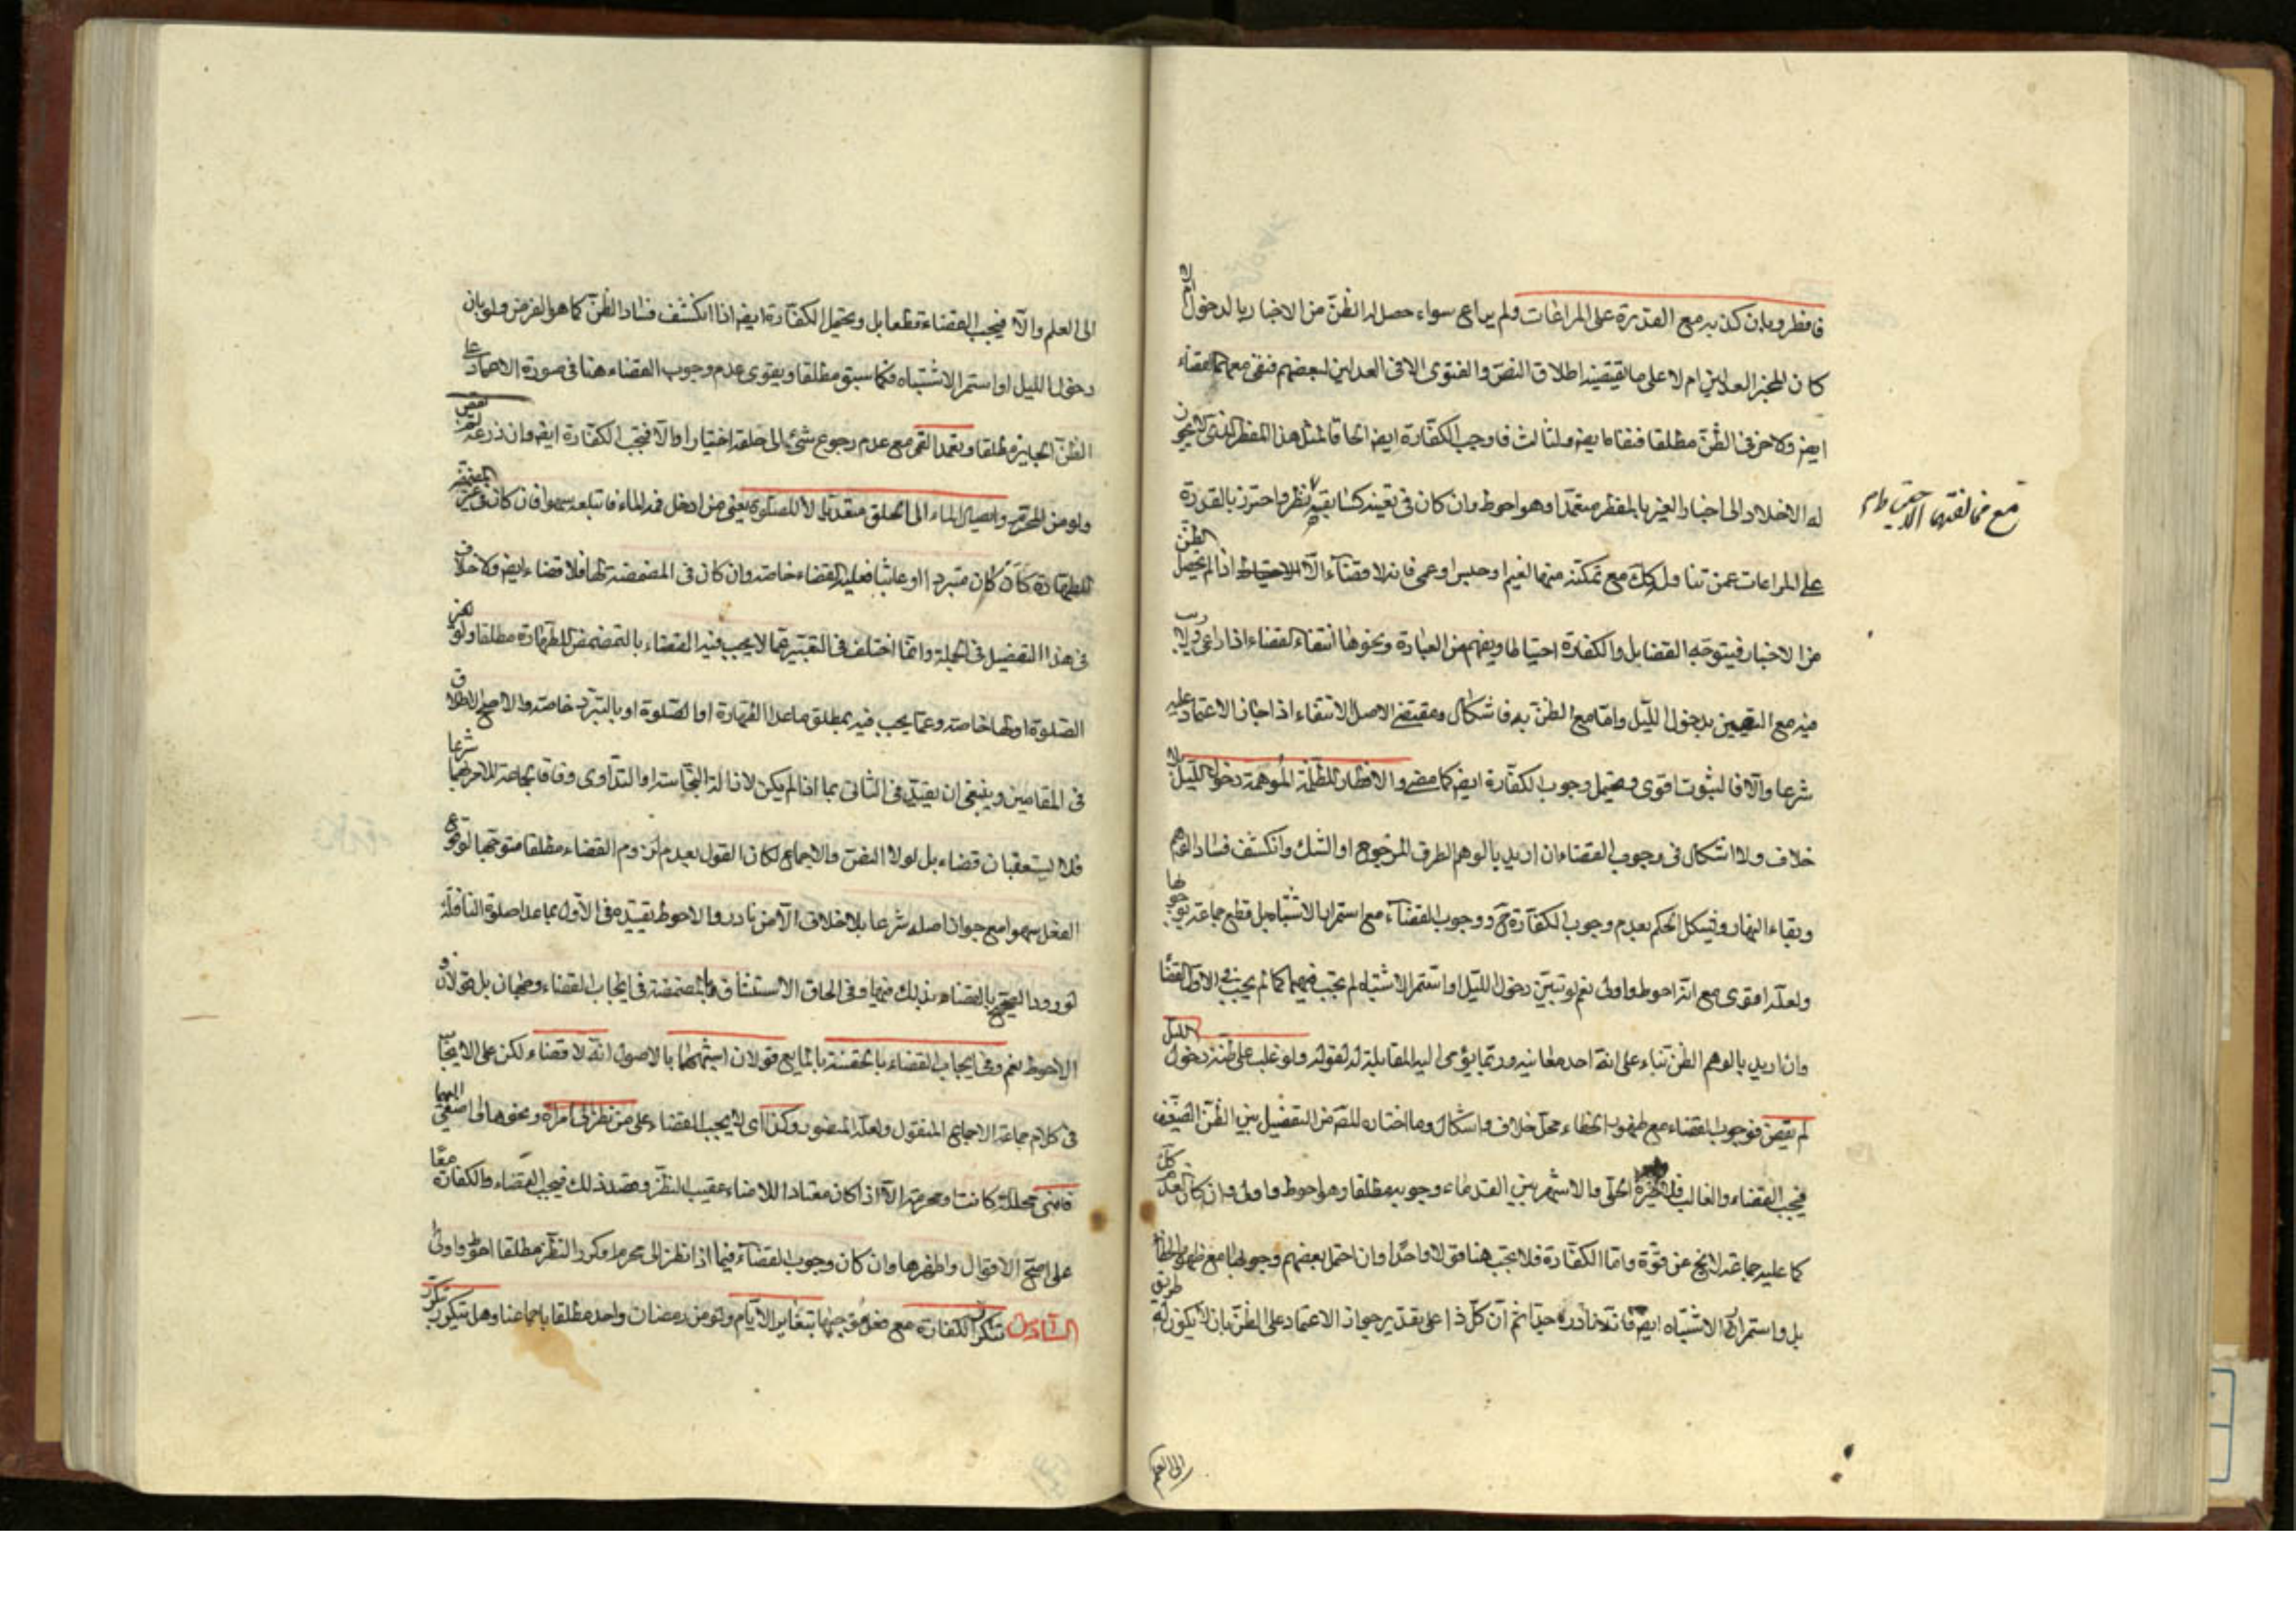 فافطر وبان كذبه مع القدرة على المراعات ولم يراعى سواء حصل له الظن من الاخبار بالدخول ام لا
كان المخبر العدلين ام لا على ما يقتضيه اطلاق النص والفتوى الا فى العدلين لبعضهم فنفى معهما القضاء
ايضا ولاخر فى الظن مطلقا فنفاه ايضا ولثالث فاوجب الكفارة ايضا الحاقا لمثل هذا المفطر الذى لا يجوز
له الاخلاد الى اخبار الغير بالمفطر متعمدا وهو احوط وان كان فى تعينه كسابقيه نظر واحترز بالقدرة
على المراعات عمن تناول كك مع عدم تمكنه منها لغيم او حبس او عمى فانه لا قضاء الا اذا لم يحصل الظن
من الاخبار فيتوجه القضا بل والكفارة احتياطا ويفهم من العبارة ونحوها انتفاء القضاء اذا راعى ولا ريب
فيه مع اليقين بدخول الليل واما مع الظن به فاشكال ومقتضى الاصل الانتفاء اذا جاز الاعتماد عليه
شرعا والا فالثبوت اقوى ويحتمل وجوب الكفارة ايضا كما مضى والافطار للظلمة الموهمة دخول الليل بلا
خلاف ولا اشكال فى وجوب القضاء ان اريد بالوهم الطرف المرجوح او الشك وانكشف فساد الوهم
وبقاء النهار ويشكل الحكم بعدم وجوب الكفارة ح ووجوب القضاء مع استمرار الاشتباه بل قطع جماعة بوجوبها
ولعله اقوى مع انه احوط واولى نعم لو تبين دخول الليل او استمر الاشتباه لم يجب فيهما كما لم يجب فى الاول القضا
وان اريد بالوهم الظن بناء على انه احد معانيه وربما يؤمى اليه المقابلة له لقوله ولو غلب على ظنه دخول الليل
لم يقض فوجوب القضاء مع ظهور الخطاء محل خلاف واشكال وما اختاره المص من التفصيل بين الظن الضعيف
فيجب القضاء والغالب فلا خيرة الحلى والاشهر بين القدماء وجوبه مطلقا وهو احوط واولى وان كان العدم
كما عليه جماعة لا يخ عن قوة واما الكفارة فلا تجب هنا قولا واحدا وان احتمل بعضهم وجوبها مع ظهور الخطأ
بل واستمرار الاشتباه ايضا فانه نادر جدا ثم ان كل ذا على تقدير جواز الاعتماد على الظن بان لا يكون له طريق
مع مخالفتهما الاحتياط
الى العلم
الى العلم والا فيجب القضاء قطعا بل ويحتمل الكفارة ايضا اذا انكشف فساد الظن كما هو الفرض ولو بان
دخول الليل او استمر الاشتباه فكما سبق مطلقا ويقوى عدم وجوب القضاء هنا فى صورة الاعتماد على
الظن الجايز مطلقا وتعمد القى مع عدم رجوع شئ الى حلقه اختيارا والا فيجب الكفارة ايضا وان ذرعه لم يقض
ولو من المحرم وايصال الماء الى الحلق متعديا لا للصلوة يعنى من ادخل فمه الماء فابتلعه سهوا فان كان
للطهارة كأن كان متبردا او عابثا فعليه القضاء خاصة وان كان فى المضمضة لها فلا قضاء ايضا ولا خلاف
فى هذا التفصيل فى الجملة وانما اختلف فى التعبير عما لا يجب فيه القضاء بالتمضمض للطهارة مطلقا ولو لغير
الصلوة او لها خاصة وعما يجب فيه بمطلق ما عدا الطهارة او الصلوة او بالتبرد خاصة والاصح الاطلاق
فى المقامين وينبغى ان يقيد فى الثانى بما اذا لم يكن لازالة النجاسة او التداوى وفاقا لجماعة للامر بهما شرعا
فلا يستعقبان قضاء بل لولا النص والاجماع لكان القول بعدم لزوم القضاء مطلقا متوجها لوقوع
الفعل سهوا مع جواز اصله شرعا بلا خلاف الا من نادر والاحوط تقييده فى الاول بما عدا صلوة النافلة
لورود الصحيح بالقضاء بذلك فيها وفى الحاق الاستنشاق بالمضمضة فى ايجاب القضاء وجهان بل قولان
الاحوط نعم وفى ايجاب القضاء بالحقنة بالمايع قولان اشبههما بالاصول انه لا قضاء لكن على الايجاب
فى كلام جماعة الاجماع المنقول ولعله المنصور وكذا اى لا يجب القضاء على من نظر الى امراة ونحوها او اصغى اليها
فامنى محللة كانت او محرمة الا اذا كان معتادا للامناء عقيب النظر وقصد ذلك فيجب القضاء والكفارة معا
على اصح الاقوال واظهرها وان كان وجوب القضاء فيما اذا نظر الى محرم او كرر النظر مطلقا احوط واولى
السادس تتكرر الكفارة مع فعل موجبها بتغاير الايام ولو من رمضان واحد مطلقا باجماعنا وهل تتكرر بتكرر